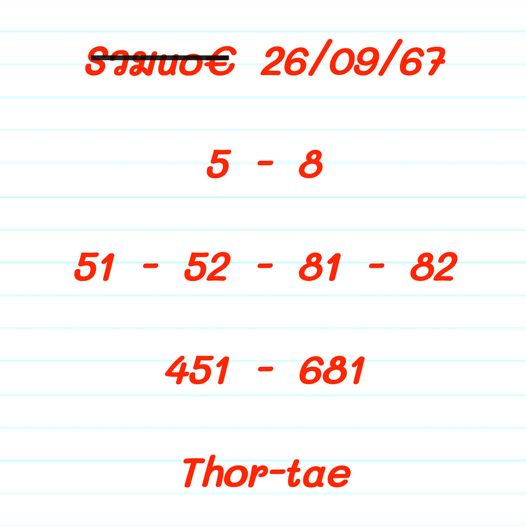 รวมนอ€ 26/09/67
5 - 8
51 - 52 - 81 - 82
451 - 681
Thor-tae